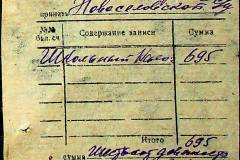 принять Новоселовской с/с
№№ бал. сч Содержание записи Сумма
Школьный 695
Итого 695
сумма Шестьсот девяносто